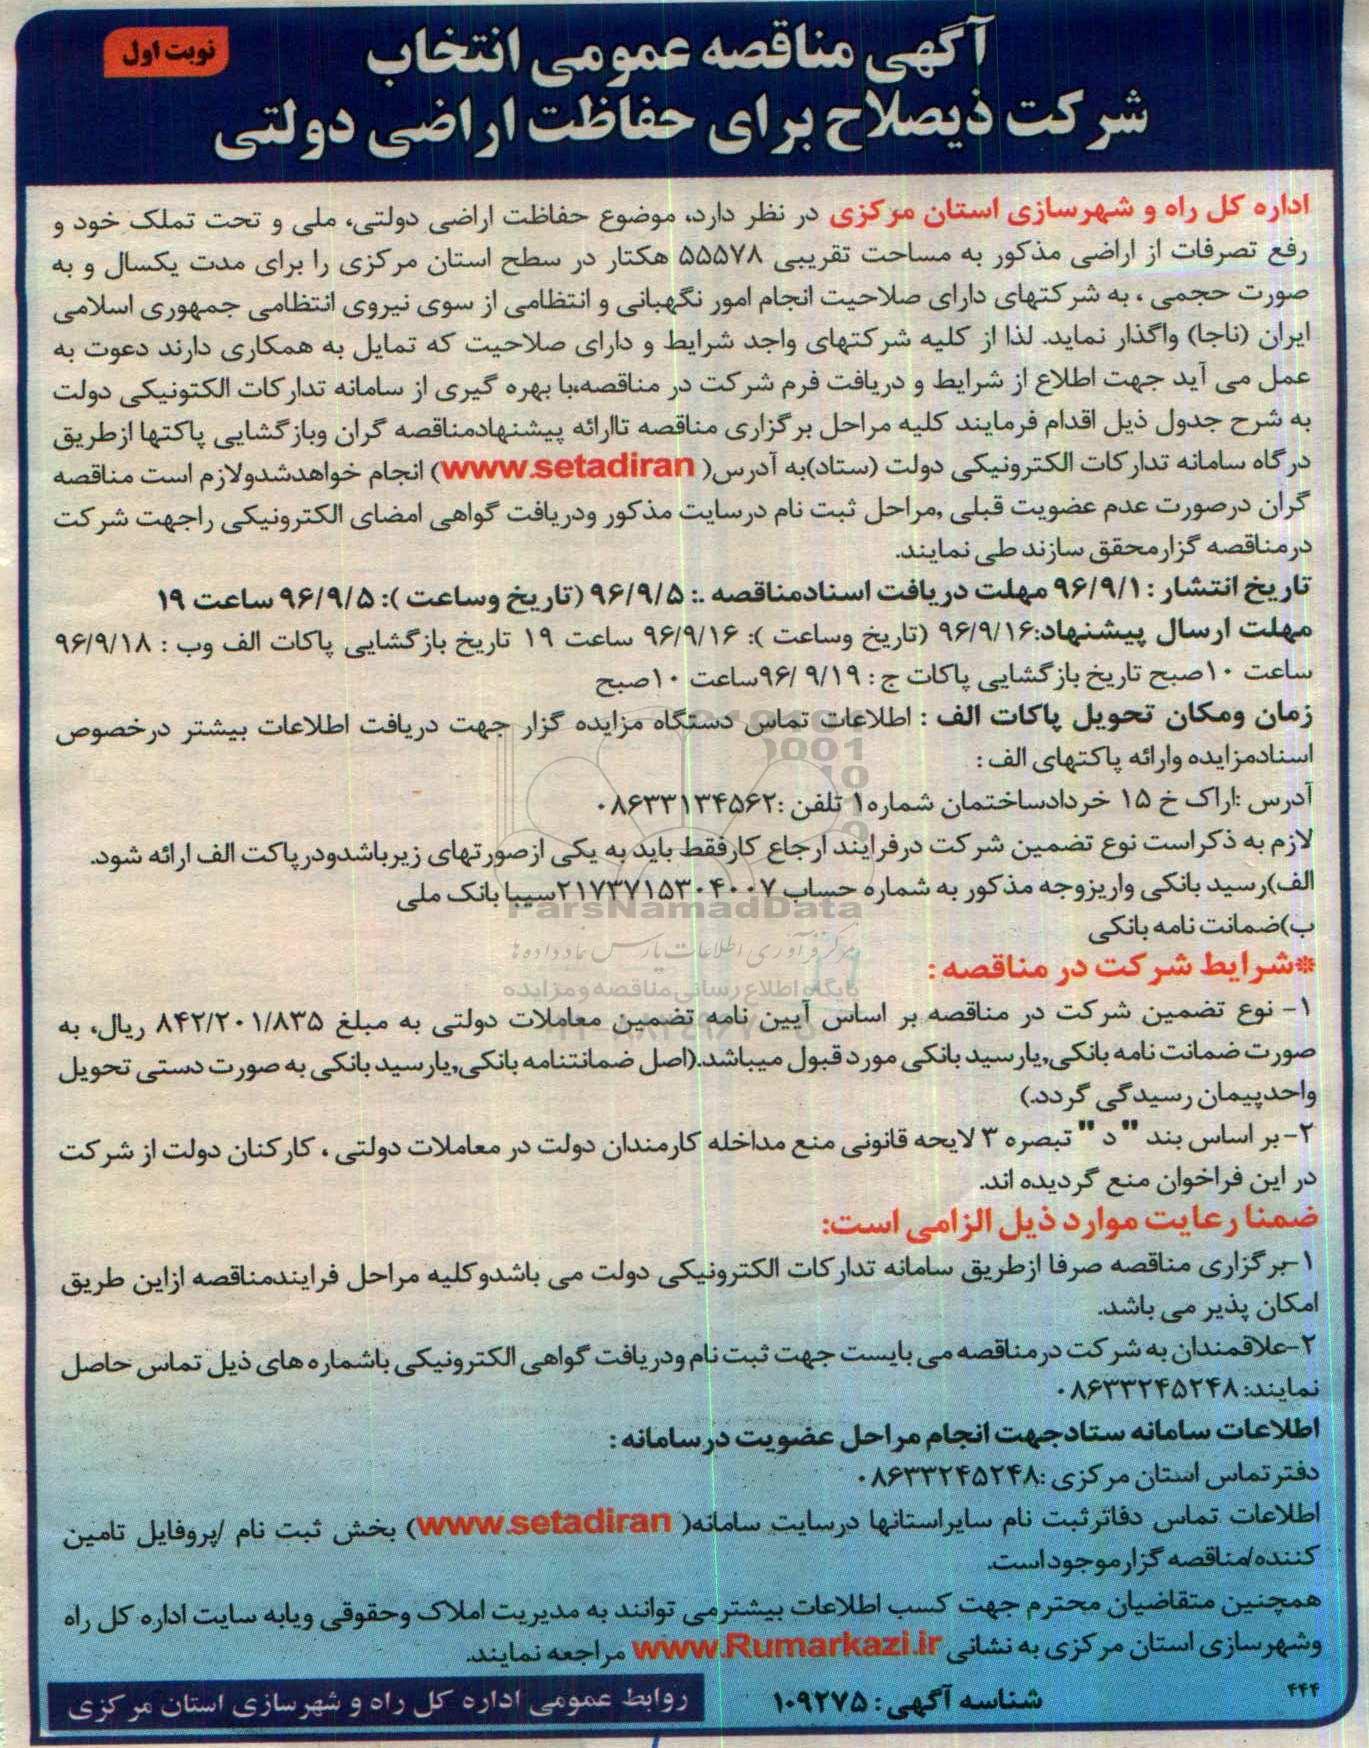 نوبت اول
آگهی مناقصه عمومی انتخاب
شرکت ذیصلاح برای حفاظت اراضی دولتی
اداره کل راه و شهرسازی استان مرکزی در نظر دارد، موضوع حفاظت اراضی دولتی، ملی و تحت تملک خود و
رفع تصرفات از اراضی مذکور به مساحت تقریبی ۵۵۵۷۸ هکتار در سطح استان مرکزی را برای مدت یکسال و به
صورت حجمی ، به شرکتهای دارای صلاحیت انجام امور نگهبانی و انتظامی از سوی نیروی انتظامی جمهوری اسلامی
ایران (ناجا) واگذار نماید. لذا از کلیه شرکتهای واجد شرایط و دارای صلاحیت که تمایل به همکاری دارند دعوت به
عمل می آید جهت اطلاع از شرایط و دریافت فرم شرکت در مناقصه،با بهره گیری از سامانه تدارکات الکتونیکی دولت
به شرح جدول ذیل اقدام فرمایند کلیه مراحل برگزاری مناقصه تاارائه پیشنهادمناقصه گران وبازگشایی پاکتها ازطریق
درگاه سامانه تدارکات الکترونیکی دولت (ستاد)به آدرس( www.setadiran) انجام خواهدشدولازم است مناقصه
گران درصورت عدم عضویت قبلی ,مراحل ثبت نام درسایت مذکور ودریافت گواهی امضای الکترونیکی راجهت شرکت
درمناقصه گزارمحقق سازند طی نمایند.
تاریخ انتشار : ۹۶/۹/۱ مهلت دریافت اسنادمناقصه .: ۹۶/۹/۵ (تاریخ وساعت ): ۹۶/۹/۵ ساعت ۱۹
مهلت ارسال پیشنهاد:۹۶/۹/۱۶ (تاریخ وساعت ): ۹۶/۹/۱۶ ساعت ۱۹ تاریخ بازگشایی پاکات الف وب : ۹۶/۹/۱۸
ساعت ۱۰صبح تاریخ بازگشایی پاکات ج : ۹۶/ ۹/۱۹ساعت ۱۰صبح
زمان ومکان تحویل پاکات الف : اطلاعات تماس دستگاه مزایده گزار جهت دریافت اطلاعات بیشتر درخصوص
اسنادمزایده وارائه پاکتهای الف :
آدرس :اراک خ ۱۵ خردادساختمان شماره۱ تلفن :۰۸۶۳۳۱۳۴۵۶۲
لازم به ذکراست نوع تضمین شرکت درفرایند ارجاع کارفقط باید به یکی ازصورتهای زیرباشدودرپاکت الف ارائه شود.
الف)رسید بانکی واریزوجه مذکور به شماره حساب ۲۱۷۳۷۱۵۳۰۴۰۰۷سیبا بانک ملی
ParsNamadData
ب)ضمانت نامه بانکی
مرکز فرآوری اطلاعات پارس نماد داده ها
*شرایط شرکت در مناقصه :
پایگاه اطلاع رسانی مناقصه و مزایده
۱- نوع تضمین شرکت در مناقصه بر اساس آیین نامه تضمین معاملات دولتی به مبلغ ۸۴۲/۲۰۱/۸۳۵ ریال، به
صورت ضمانت نامه بانکی,یارسید بانکی مورد قبول میباشد.(اصل ضمانتنامه بانکی,یارسید بانکی به صورت دستی تحویل
واحدپیمان رسیدگی گردد.)
۲-بر اساس بند "د" تبصره ۳ لایحه قانونی منع مداخله کارمندان دولت در معاملات دولتی ، کارکنان دولت از شرکت
در این فراخوان منع گردیده اند.
ضمنا رعایت موارد ذیل الزامی است:
۱-برگزاری مناقصه صرفا ازطریق سامانه تدارکات الکترونیکی دولت می باشدوکلیه مراحل فرایندمناقصه ازاین طریق
امکان پذیر می باشد.
۲-علاقمندان به شرکت درمناقصه می بایست جهت ثبت نام ودریافت گواهی الکترونیکی باشماره های ذیل تماس حاصل
نمایند:۰۸۶۳۳۲۴۵۲۴۸
اطلاعات سامانه ستادجهت انجام مراحل عضویت درسامانه :
دفترتماس استان مرکزی :۰۸۶۳۳۲۴۵۲۴۸
اطلاعات تماس دفاترثبت نام سایراستانها درسایت سامانه( www.setadiran) بخش ثبت نام /پروفایل تامین
کننده/مناقصه گزارموجوداست.
همچنین متقاضیان محترم جهت کسب اطلاعات بیشترمی توانند به مدیریت املاک وحقوقی ویابه سایت اداره کل راه
وشهرسازی استان مرکزی به نشانی www.Rumarkazi.ir مراجعه نمایند.
۴۴۴
شناسه آگهی : ۱۰۹۲۷۵
روابط عمومی اداره کل راه و شهرسازی استان مرکزی